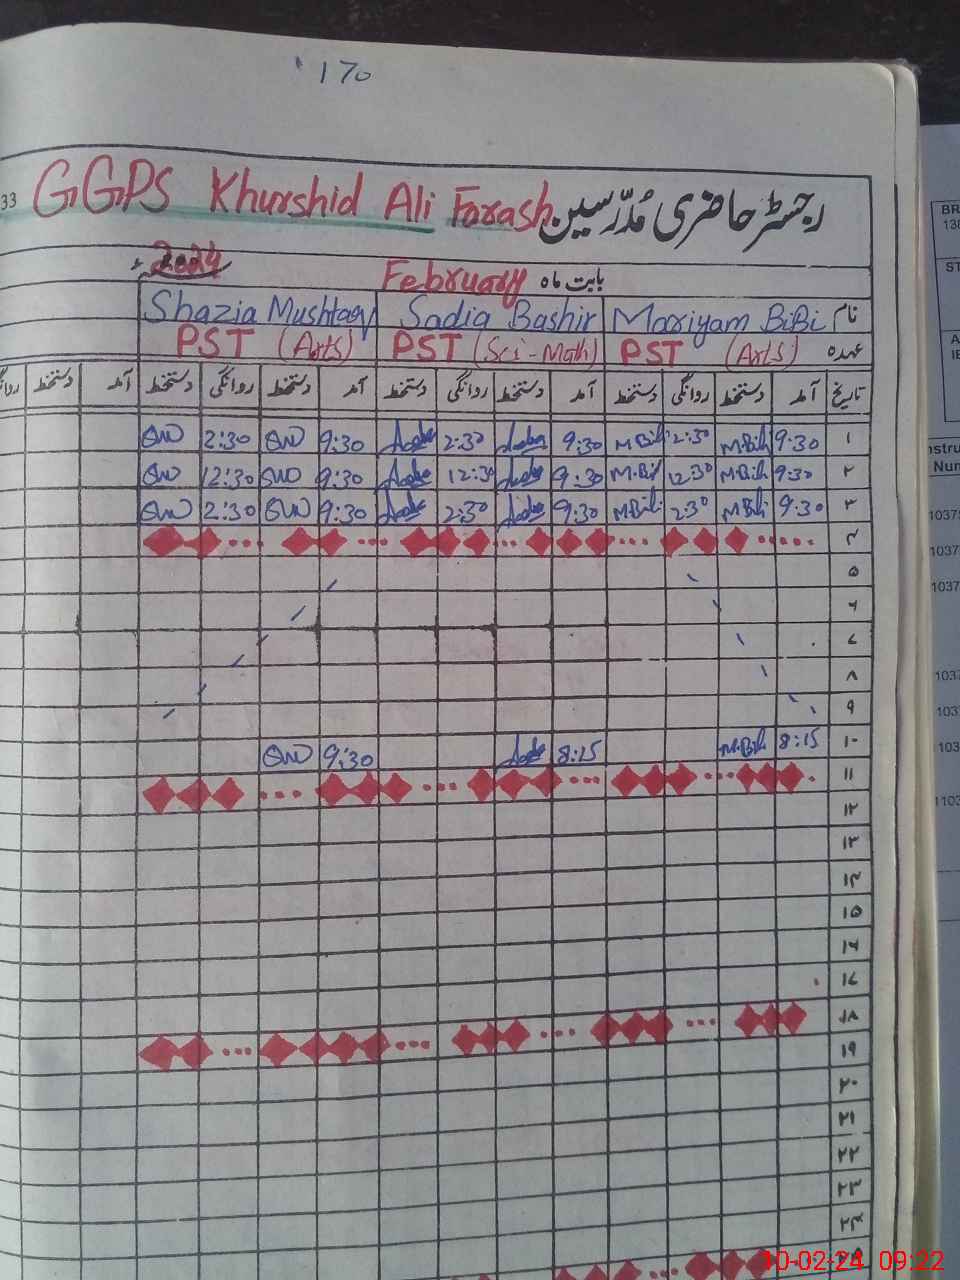 170
33 GGPS Khurshid Ali Farash رجسٹر حاضری مُدرّسین
بابت ماہ February 2024ء
نام Mariyam BiBi Sadia Bashir Shazia Mushtaq
عہدہ PST (Arts) PST (Sci-Math) PST (Arts)
تاریخ آمد دستخط روانگی دستخط آمد دستخط روانگی دستخط آمد دستخط روانگی دستخط آمد دستخط
۱ 9:30 M.Bibi 2:30 M.Bibi 9:30 2:30 9:30 2:30
۲ 9:30 M.Bibi 12:30 M.Bibi 9:30 12:30 9:30 12:30
۳ 9:30 M.Bibi 2:30 M.Bibi 9:30 2:30 9:30 2:30
۴
۵
۶
۷
۸
۹
۱۰ 8:15 M.Bibi 8:15 9:30
۱۱
۱۲
۱۳
۱۴
۱۵
۱۶
۱۷
۱۸
۱۹
۲۰
۲۱
۲۲
۲۳
۲۴
۲۵
BR
138
ST
A
Num
10375
1037
1037
1037
1037
103
1103
10-02-24 09:22